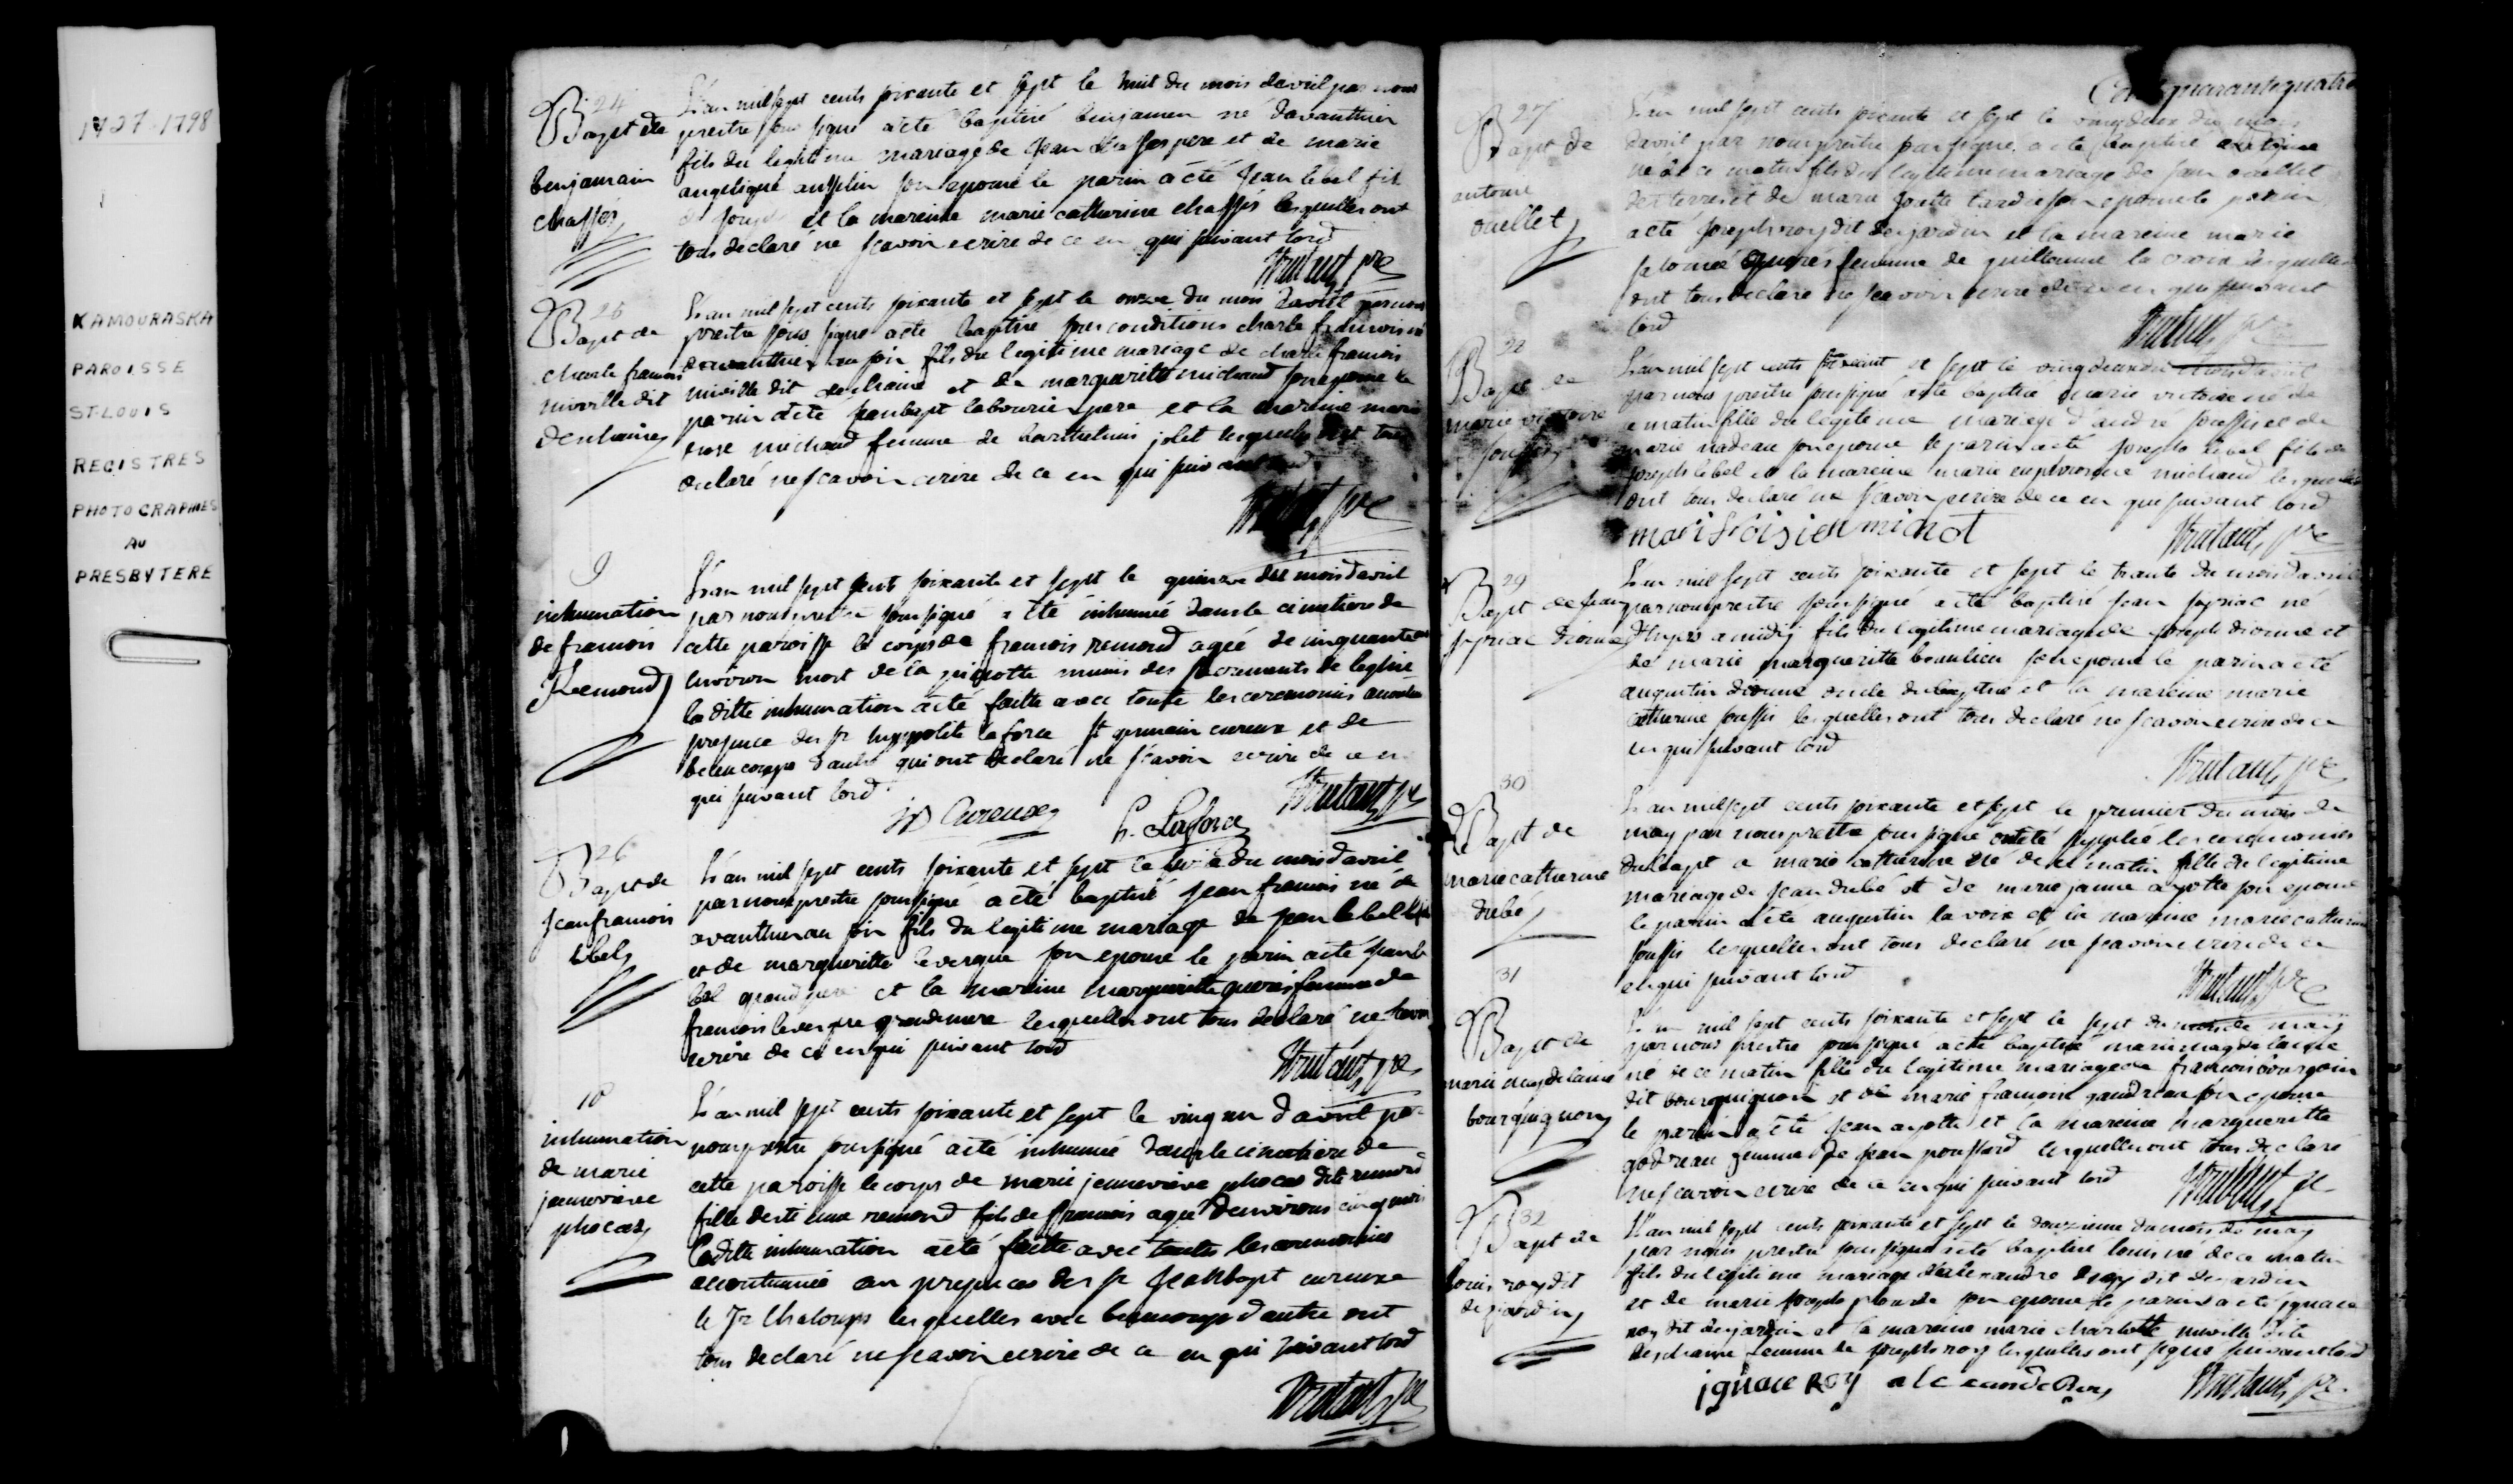 1727-1798
KAMOURASKA
PAROISSE
ST-LOUIS
REGISTRES
PHOTOGRAPHIES
AU
PRESBYTERE
24
Bapt de
benjamain
chassés
L'an mil sept cents soixante et sept le huit du mois davril par nous
prestre sous signé a été baptisé benjamin né davanthier
fils du legitime mariage de Jean pere et de marie
angelique ansselin son epouse le parin a été Jean lebel fils
de et la mareine marie catherine chassés lesquelles ont
tous declaré ne scavoir ecrire de ce en qui suivant lord
Trutaut ptre
25
Bapt de
charle francois
miville dit
denhaine
L'an mil sept cents soixante et sept le onze du mois davril par nous
prestre sous signé a été baptisé sous conditions charle francois né
davanthier au soir fils du legitime mariage de charle francois
miville dit dechaine et de marguerite michaud son epouse le
parin a été labourie pere et la mareine marie
rose michaud femme de barthelemi jolet lesquels ont tous
declaré ne scavoir ecrire de ce en qui suivant lord
Trutaut ptre
9
inhumation
de francois
Remond
L'an mil sept cent soixante et sept le quinze du mois davril
par nous prestre sousigné a été inhumée dans le cimetiere de
cette paroisse le corps de francois remond agée de cinquante ans
environ mort de la picotte munis des sacrements de leglise
la ditte inhumation a été faitte avec toute les ceremonies
presence des sr hyppolite laforce st germain cureux et de
beaucoupe dautre qui ont declaré ne scavoir ecrire de ce en
qui suivant lord
Cureux h. Laforce Trutaut ptre
26
Bapt de
Jean francois
lebel
L'an mil sept cents soixante et sept le du mois davril
par nous prestre sousigné a été baptisé Jean francois né de
avanthier au soir fils du legitime mariage de Jean lebel
et de margueritte levesque son epouse le parin a été Jean le
bel grand pere et la mareine margueritte queres femme de
francois levesque grandmere lesquelles ont tous declaré ne scavoir
ecrire de ce en qui suivant lord
Trutaut ptre
10
inhumation
de marie
jenneviève
phocas
L'an mil sept cents soixante et sept le vingt un davril par
nous prestre sousigné a été inhumée dans le cimetiere de
cette paroisse le corps de marie jennevieve phocas dite remond
fille destienne remond fils de francois agée denvirons cinq mois
laditte inhumation a été faitte avec toutes les ceremonies
accoutumée en presences des sr Jean bapt cureux
le sr Chaloups lesquelles avec beaucoup dautre ont
tous declaré ne scavoir ecrire de ce en qui suivant lord
Trutaut ptre
Cent quarante quatre
27
Bapt de
antoine
ouellet
L'an mil sept cents soixante et sept le vingdeux du mois
davril par nous prestre sousigné a été baptisé antoine
né de ce matin fils du legitime mariage de Jean ouellet
et de marie josette tardif son epouse le parin
a été Joseph roy dit dejardin et la mareine marie
salomée queres femme de guillaume la voix lesquelles
ont tous declaré ne scavoir ecrire de ce en qui suivant
lord
Trutaut ptre
28
Bapt de
marie victoire
soussis
L'an mil sept cents soixant et sept le
par nous prestre sousigné a été baptisé marie victoire né de
ce matin fille du legitime mariage dandre soussis et de
marie nadeau son epouse le parin a été joseph lebel fils de
joseph lebel et la mareine marie euphrosine michaud lesquelles
ont tous declaré ne scavoir ecrire de ce en qui suivant lord
mari froisien michot Trutaut ptre
29
Bapt de Jean
syriac dionne
L'an mil sept cents soixante et sept le trante du mois davril
par nous prestre sousigné a été baptisé Jean syriac né
dhyer a midij fils du legitime mariage de Joseph dionne et
de marie margueritte beaulieu son epouse le parin a été
augustin dionne oncle du baptisé et la mareine marie
catherine soussis lesquelles ont tous declaré ne scavoir ecrire de ce
en qui suivant lord
Trutaut ptre
30
Bapt de
marie catherine
dubé
L'an mil sept cents soixante et sept le premier du mois de
may par nous prestre sousigné ont été supplée les ceremonies
du bapt a marie catherine né de ce matin fille du legitime
mariage de Jean dubé et de marie janne ayotte son epouse
le parin a été augustin la voix et la mareine marie catherine
soussis lesquelles ont tous declaré ne scavoir ecrire de ce
en qui suivant lord
Trutaut ptre
31
Bapt de
marie magdelaine
bourguignon
L'an mil sept cents soixante et sept le sept du mois de may
par nous prestre sousigné a été baptisé marie magdelaine
né de ce matin fille du legitime mariage de francois bourgoin
dit bourguignon et de marie francoise gaudreau son epouse
le parin a été Jean ayotte et la mareine margueritte
godreau femme de Jean poussard lesquelles ont tous declaré
ne scavoir ecrire de ce en qui suivant lord Trutaut ptre
32
Bapt de
louis roy dit
dejardin
L'an mil sept cents soixante et sept le douzieme du mois de may
par nous prestre sousigné a été baptisé louis né de ce matin
fils du legitime mariage dalexandre roy dit dejardin
et de marie joseph plourde son epouse le parin a été ignace
roy dit dejardin et la mareine marie charlotte miville dite
deschaine femme de joseph roy lesquelles ont signé suivant lord
ignace Roy alexandre Roy Trutaut ptre